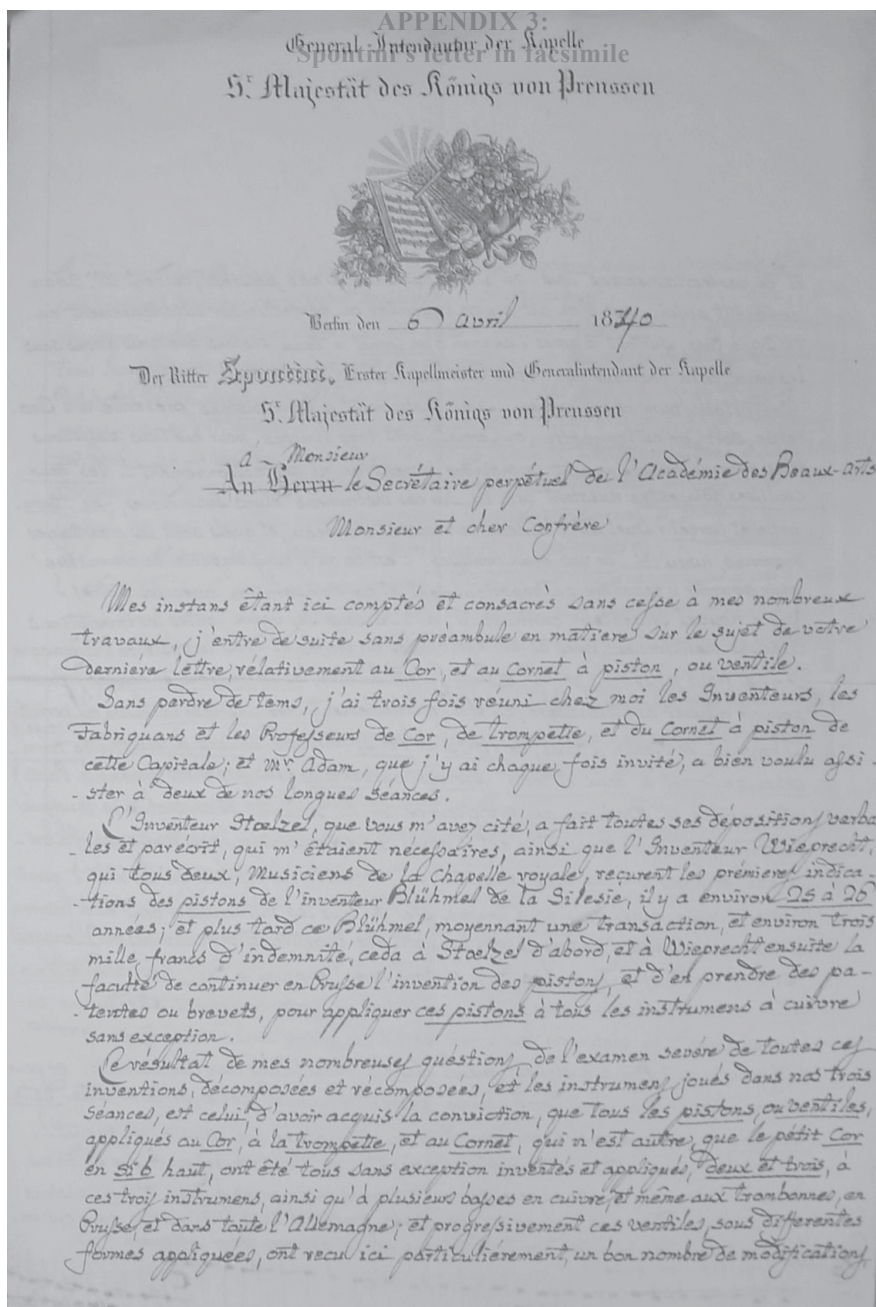 APPENDIX 3:
General Intendantur der Kapelle
Spontini's letter in facsimile
Sr. Majestät des Königs von Preussen
Berlin den 6 avril 1840
Der Ritter Spontini, Erster Kapellmeister und Generalintendant der Kapelle
Sr. Majestät des Königs von Preussen
á Monsieur
An Herrn le Secrétaire perpétuel de l'Académie des Beaux-arts
Monsieur et cher Confrère
Mes instans êtant ici comptés et consacrès sans cesse à mes nombreux
travaux, j'entre de suite sans préambule en matiere sur le sujet de votre
derniére lettre, rélativement au Cor, et au Cornet à piston, ou ventile.
Sans perdre de tems, j'ai trois fois réuni chez moi les Inventeurs, les
Fabriquans et les Professeurs de Cor, de trompette, et du Cornet à piston de
cette Capitale; et Mr. Adam, que j'y ai chaque fois invité, a bien voulu assi-
-ster à deux de nos longues séances.
L'Inventeur Stoelzel, que vous m'avez cité, a fait toutes ses dépositions verba
-les et par écrit, qui m'étaient nécessaires, ainsi que l'Inventeur Wieprecht,
qui tous deux, Musiciens de la Chapelle royale, reçurent les prémieres indica-
-tions des pistons de l'inventeur Blühmel de la Silesie, il y a environ 25 à 26
années; et plus tard ce Blühmel, moyennant une transaction, et environ trois
mille, francs d'indemnité, ceda à Stoelzel d'abord, et à Wieprecht ensuite la
faculté de continuer en Prusse l'invention des pistons, et d'en prendre des pa-
-tentes ou brevets, pour appliquer ces pistons à tous les instrumens à cuivre
sans exception.
Le résultat de mes nombreuses quéstions, de l'examen sevére de toutes ces
inventions, décomposées et récomposées, et les instrumens joués dans nos trois
Séances, est celui, d'avoir acquis la conviction, que tous les pistons, ou ventiles,
appliqués au Cor, à la trompette, et au Cornet, qui n'est autre, que le pétit Cor
en si b haut, ont été tous sans exception inventés et appliqués, deux et trois, à
ces trois instrumens, ainsi qu'à plusieurs basses en cuivre, et même aux trombonnes, en
Prusse, et dans toute l'Allemagne; et progressivement ces ventiles, sous differentes
formes appliquées, ont recu ici particuliérement, un bon nombre de modifications,